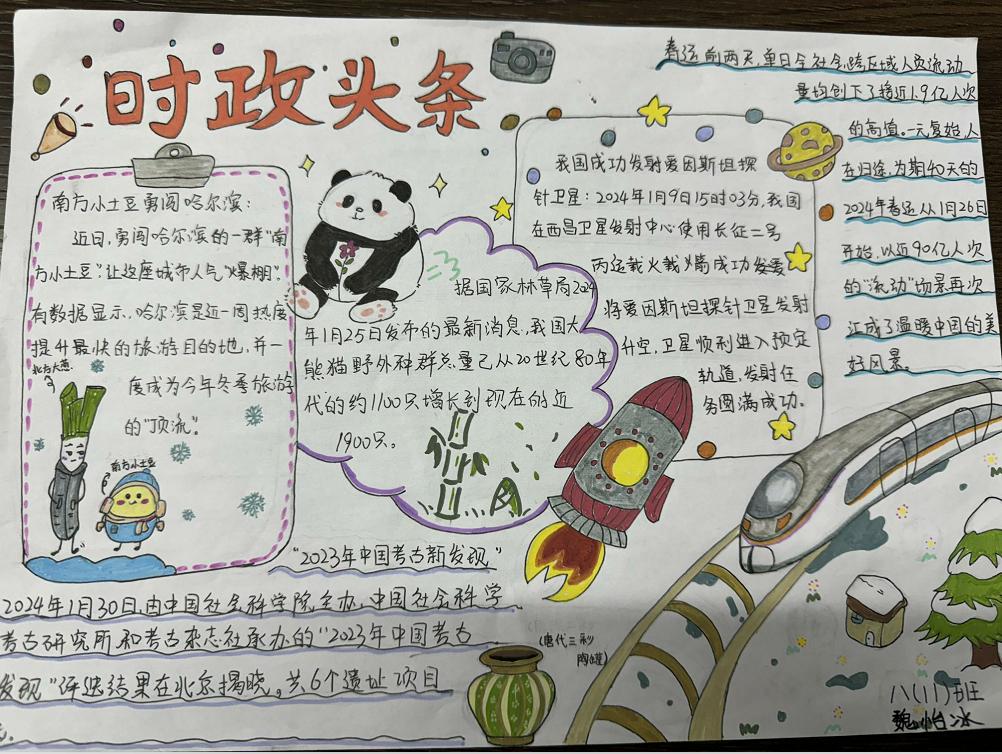 时政头条
南方小土豆勇闯哈尔滨:
近日,勇闯哈尔滨的一群“南
方小土豆”,让这座城市人气“爆棚”。
有数据显示,哈尔滨是近一周热度
提升最快的旅游目的地,并一
度成为今年冬季旅游
的“顶流”。
北方大葱
南方小土豆
据国家林草局2024
年1月25日发布的最新消息,我国大
熊猫野外种群总量已从20世纪80年
代的约1100只增长到现在的近
1900只。
我国成功发射爱因斯坦探
针卫星:2024年1月9日15时03分,我国
在西昌卫星发射中心使用长征二号
丙运载火载火箭成功发
将爱因斯坦探针卫星发射
升空,卫星顺利进入预定
轨道,发射任
务圆满成功。
春运前两天,单日全社会跨区域人员流动
量均创下了接近1.9亿人次
的高值。一元复始,人
在归途,为期40天的
2024年春运从1月26日
开始,以近90亿人次
的“流动”场景再次
汇成了温暖中国的美
好风景。
“2023年中国考古新发现”
2024年1月30日,由中国社会科学院主办,中国社会科学
考古研究所和考古杂志社承办的“2023年中国考古
发现”评选结果在北京揭晓。共6个遗址项目
(唐代三彩
陶罐)
八(11)班